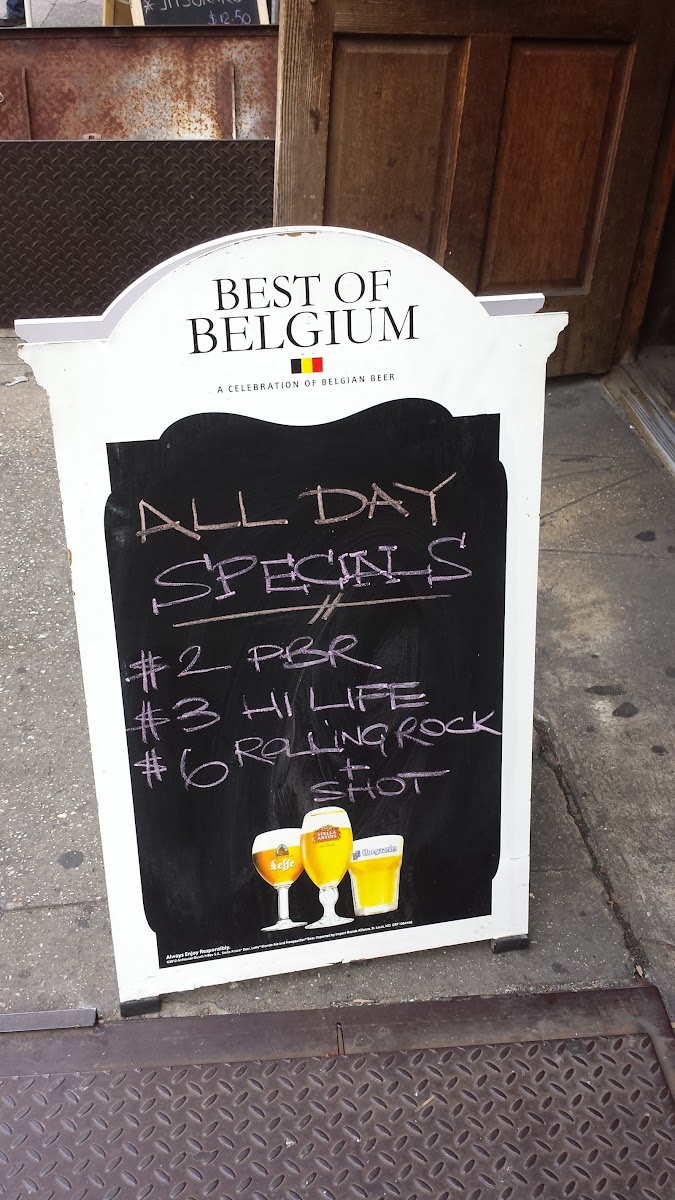 $12.50
BEST OF
BELGIUM
A CELEBRATION OF BELGIAN BEER
ALL DAY
SPECIALS
$2 PBR
$3 HI LIFE
$6 ROLLING ROCK
+
SHOT
Leffe
STELLA
ARTOIS
Hoegaarden
Always Enjoy Responsibly.